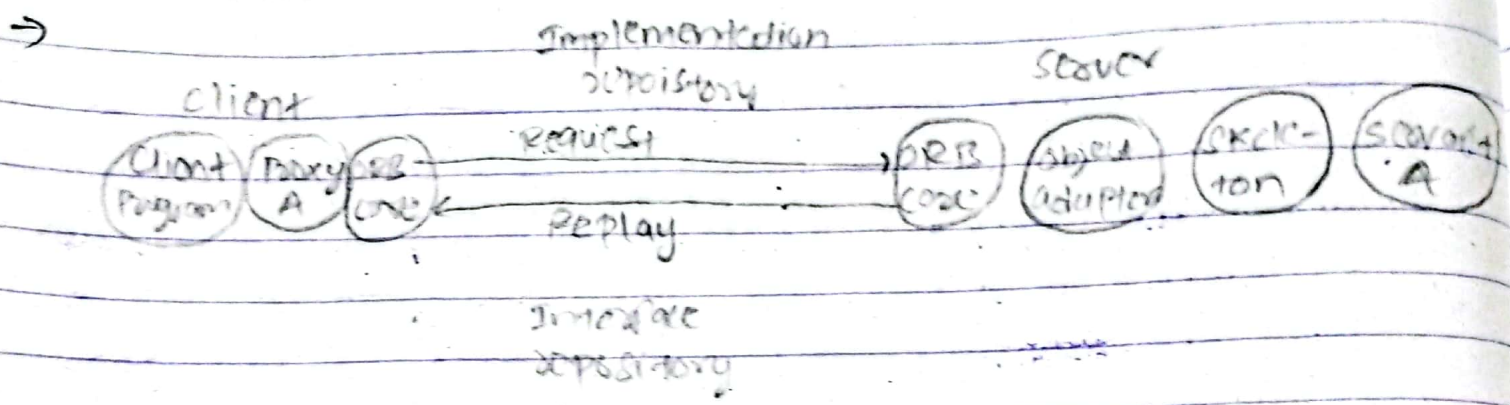 → Implementation
repoistory
Server
Client
Client Program
Proxy A
ORB core
Request
Replay
ORB core
object adapter
Skele-
ton
Servant A
Interface
repository